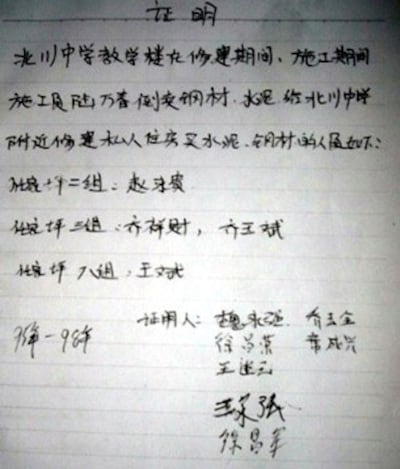 证明
北川中学教学楼在修建期间、施工期间
施工员陆万春倒卖钢材、水泥给北川中学
附近修建私人住房买水泥、钢材的人员如下:
任家坪二组:赵洪贵
任家坪三组:齐祥财,齐玉斌
任家坪八组:王文
证明人:魏永强
徐昌荣
95年-98年
王
王永强
徐昌军